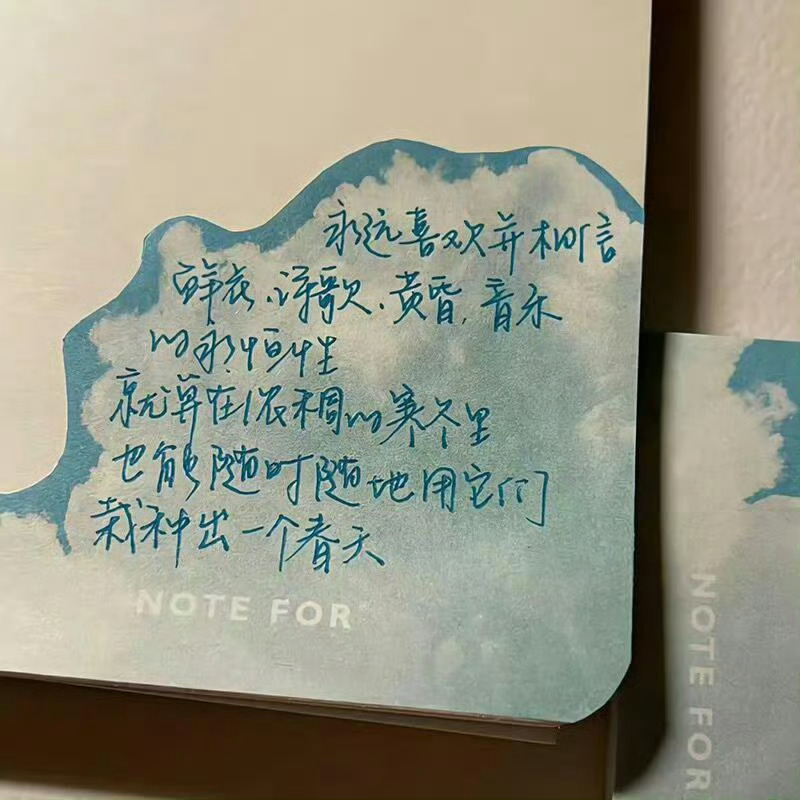 永远喜欢并相信
鲜花、诗歌、黄昏,音乐
的永恒性
就算在浓稠的寒冬里
也能随时随地用它们
栽种出一个春天
NOTE FOR
NOTE FOR